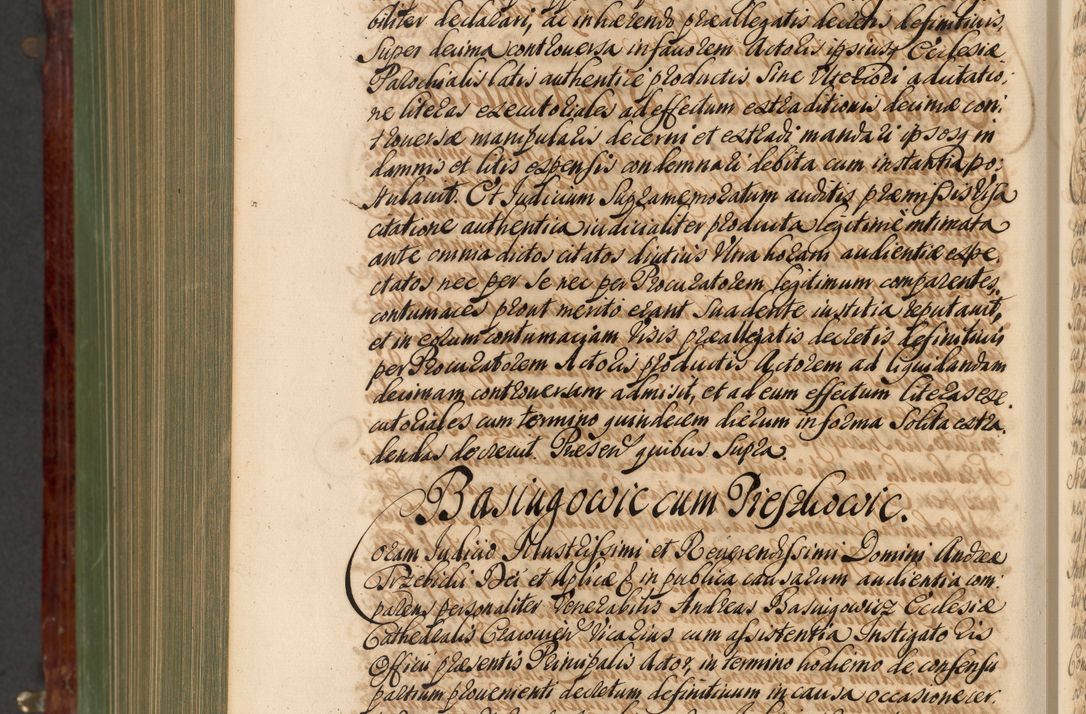 biliter declarari, ac inhærendo præallegatis decretis definitivis,
super decima controversa in favorem Actoris ipsiusq Ecclesiæ
Parochialis latis authentice productis sine Ulteriori ad citatio,
ne literas executoriales ad effectum extraditionis decimæ con,
troversæ manipularis decerni et extradi mandari ipsosq in
damnis et litis expensis condemnari debita cum instantia po,
stulavit. Et Judicium Supramemoratum auditis præmissis Visa
citatione authentica iudicialiter producta legitime intimata
ante omnia dictos citatos diutius Ultra horam audientiæ expe,
ctatos nec per se nec per Procuratorem legitimum comparentes
contumaces prout merito erant suadente iustitia reputavit,
et in eorum contumaciam Visis præallegatis decretis definitivis
per Procuratorem Actoris productis Actorem ad liquidandam
decimam controversam admisit, et ad eum effectum literas exe,
cutoriales cum termino quindecem dierum in forma solita extra,
dendas decrevit. Præsen quibus supra
Basingowic cum Preszkowic.
Coram Judicio Illustrissimi et Reverendissimi Domini Andreæ
Trzebicki Dei et Aplicæ & in publica causarum audientia com,
parens personaliter Venerabilis Andreas Basingowicz Ecclesiæ
Cathedralis Cracovien Vicarius cum assistentia Instigatoris
Officii præsentis Principalis Actor, in termino hodierno de consensu
partium provenienti decretum definitivum in causa occasione cer,